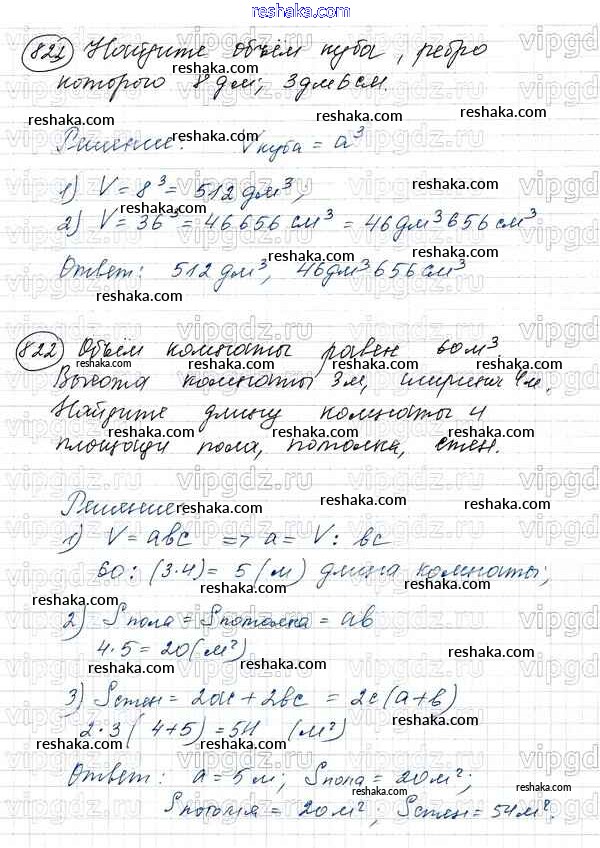 reshaka.com
821 Найдите объём куба, ребро
которого 8 дм; 3 дм 6 см.
Решение: Vкуба = a³
1) V = 8³ = 512 дм³;
2) V = 36³ = 46656 см³ = 46 дм³ 656 см³
Ответ: 512 дм³, 46 дм³ 656 см³
822 Объём комнаты равен 60 м³.
Высота комнаты 3 м, ширина 4 м.
Найдите длину комнаты и
площади пола, потолка, стен.
Решение:
1) V = abc => a = V : bc
60 : (3·4) = 5 (м) длина комнаты;
2) Sпола = Sпотолка = ab
4·5 = 20 (м²)
3) Sстен = 2ac + 2bc = 2c(a+b)
2·3 (4+5) = 54 (м²)
Ответ: a = 5 м; Sпола = 20 м²;
Sпотолка = 20 м²; Sстен = 54 м².